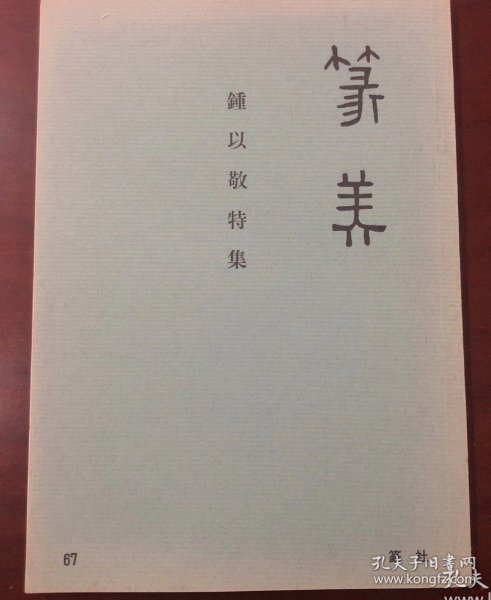 篆美
鍾以敬特集
67
篆社
孔夫子旧书网
www.kongfz.com
孔夫